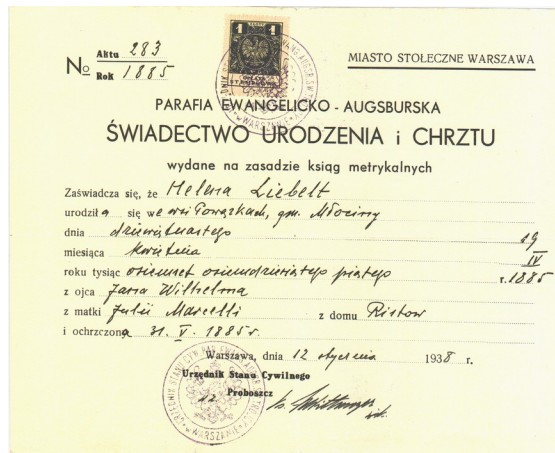 Aktu 283
№
Rok 1885
MIASTO STOŁECZNE WARSZAWA
1 1
PARAFIA EWANGELICKO - AUGSBURSKA
ŚWIADECTWO URODZENIA i CHRZTU
wydane na zasadzie ksiąg metrykalnych
Zaświadcza się, że Helena Liebelt
urodziła się we wsi Powązkach, gm. Młociny
dnia dziewiętnastego 19
miesiąca kwietnia IV
roku tysiąc osiemset osiemdziesiątego piątego r. 1885
z ojca Jana Wilhelma
z matki Julii Marcelli z domu Ristow
i ochrzczona 31. V. 1885 r.
Warszawa, dnia 12 stycznia 1938 r.
Urzędnik Stanu Cywilnego
Proboszcz
WARSZAWIE